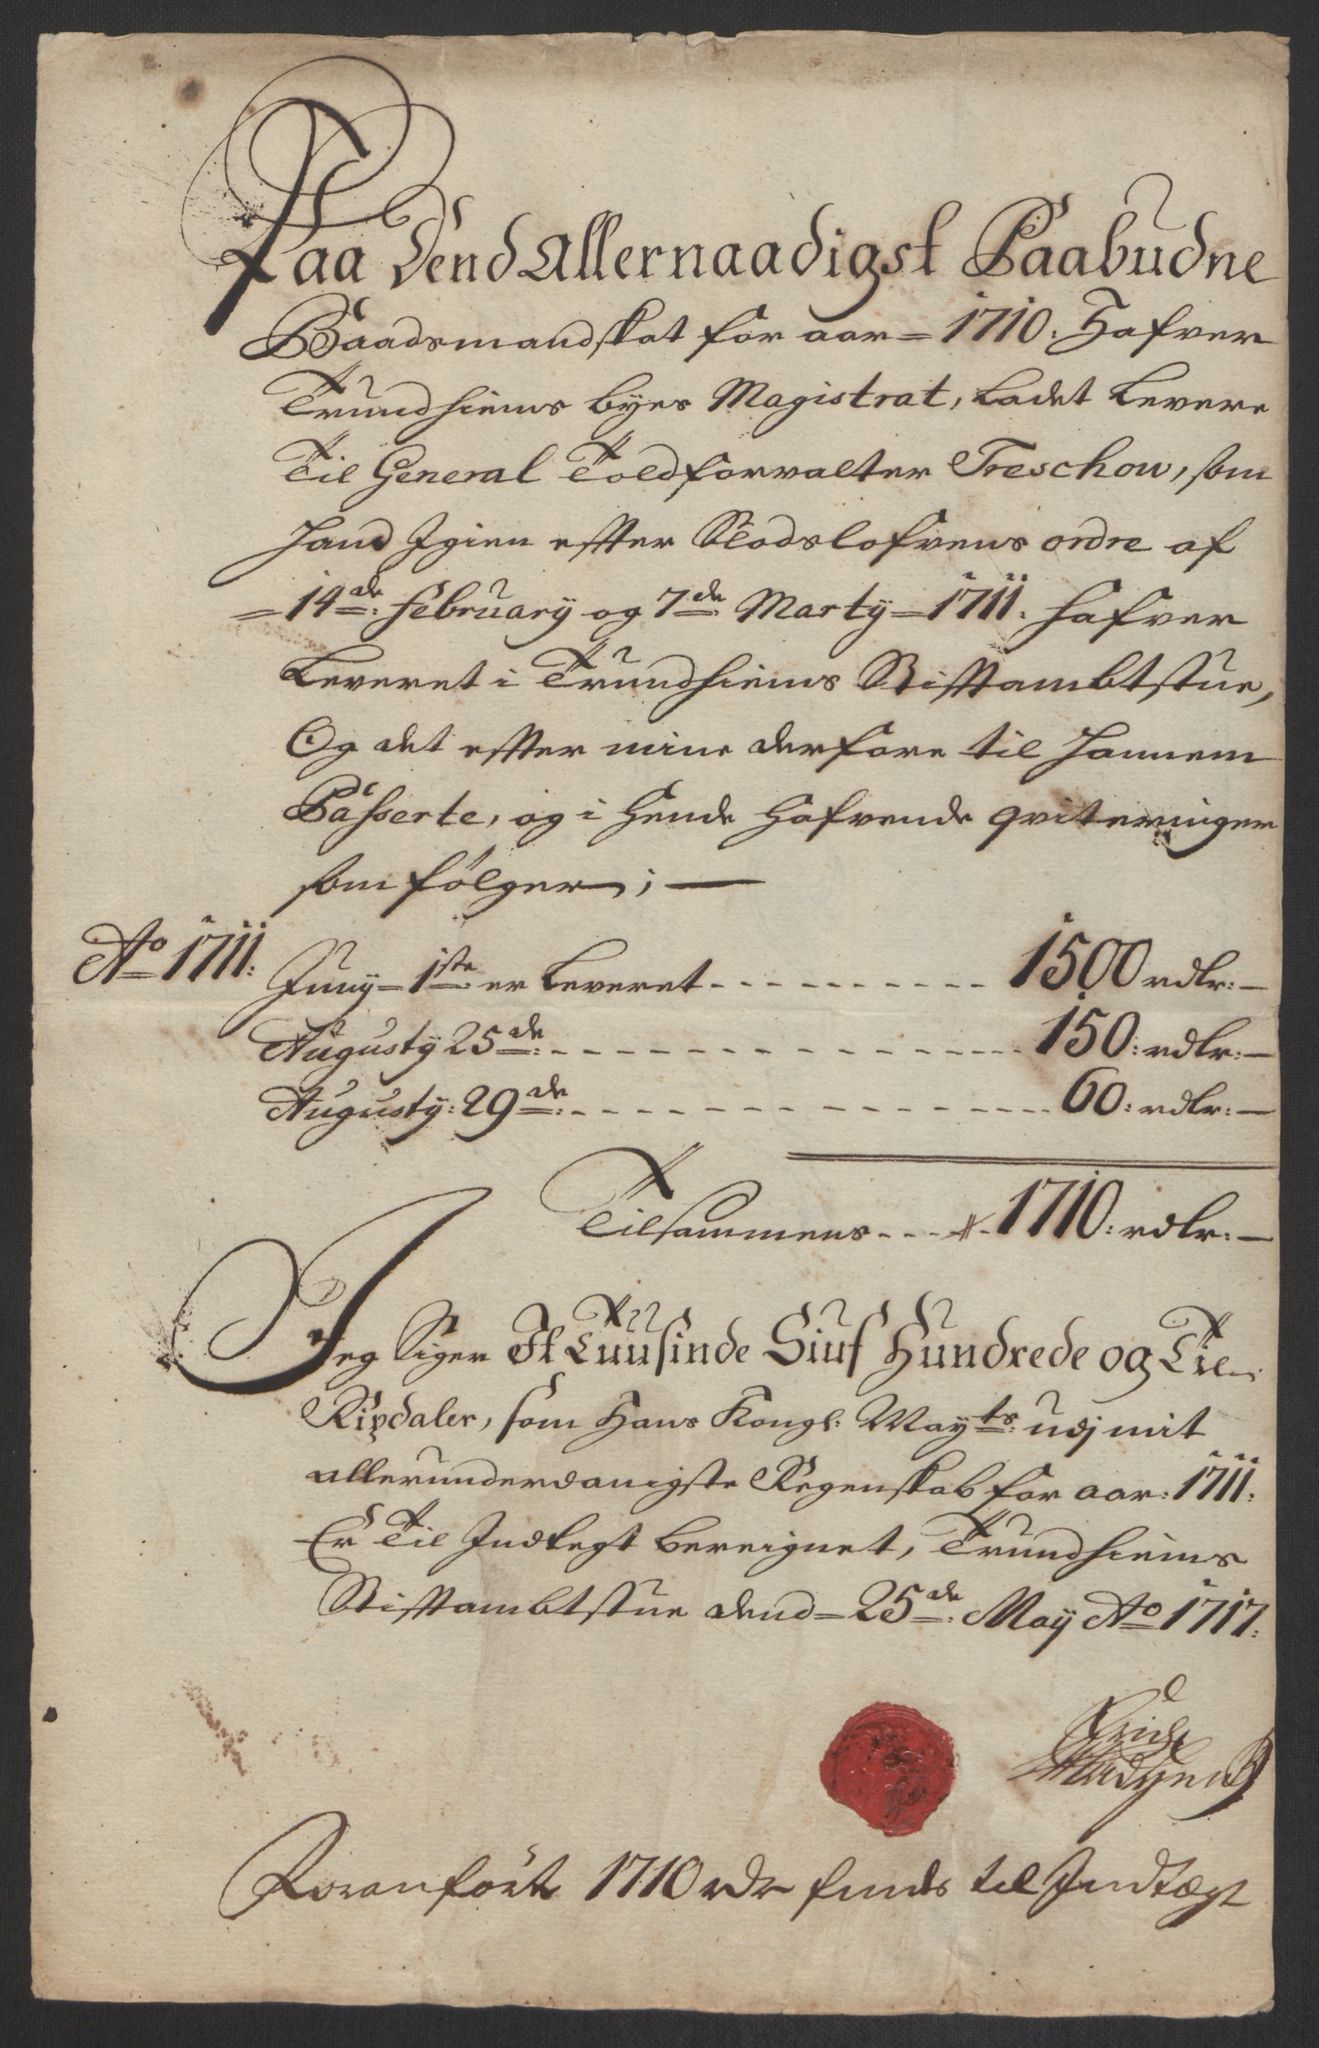 Paa Dend Allernaadigst Paabudne
Baadsmandskat for aar 1710. Hafver
Trundhiems byes Magistrat, Ladet Levere
Til General Toldforvalter Treschow, som
hand Igien effter Slodslofvens ordre af
14de: February og 7de Marty 1711. hafver
Leveret i Trundhiems Stifftambtstue,
Og det effter mine derfore til hannem
Passerte, og i hende hafvende qviteringer
som følger; —
Ao 1711: Juny 1ste er Leveret 1500 rdlr: —
Augusty 25de: 150: rdlr: —
Augusty: 29de: 60: rdlr: —
Tilsammens 1710: rdlr: —
Jeg Siger Et Tuusinde Siuf Hundrede og Tie
Rixdaler, som Hans Kongl: Mayts: udj mit
allerunderdanigste Regenskab for aar: 1711:
Er Til Indtegt bereignet, Trundhiems
Stifftambtstue dend 25de: May Ao 1717:
Erich
Madsen
Foranførte 1710 rdr findes til Indtægt